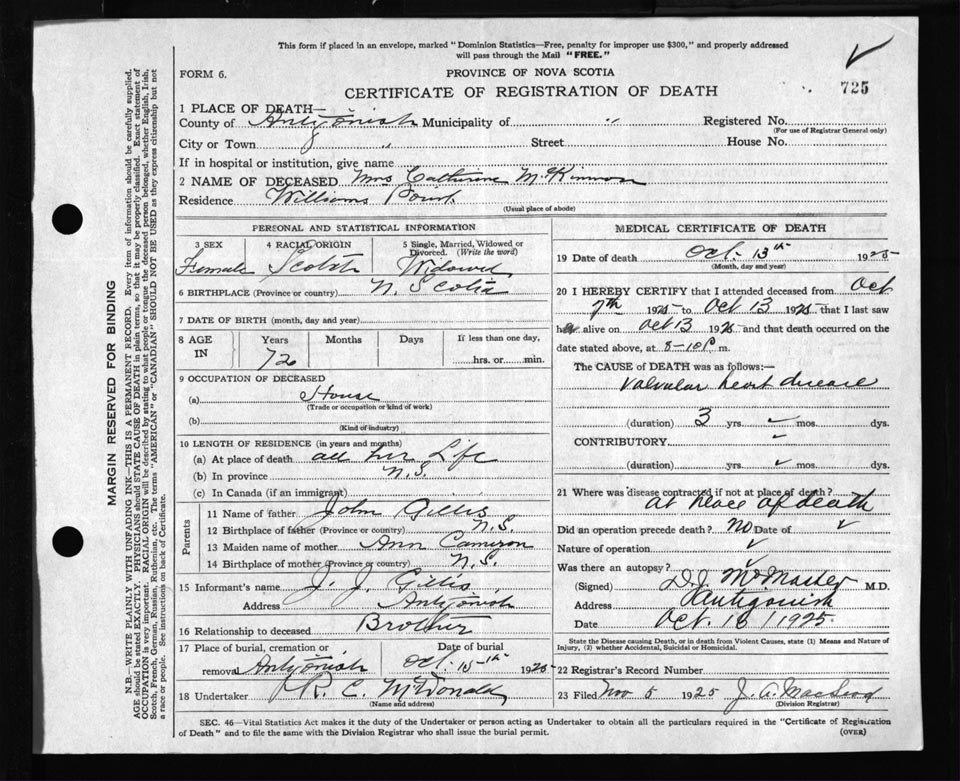 This form if placed in an envelope, marked "Dominion Statistics—Free, penalty for improper use $300," and properly addressed
will pass through the Mail "FREE."
725
FORM 6.
PROVINCE OF NOVA SCOTIA
CERTIFICATE OF REGISTRATION OF DEATH
1 PLACE OF DEATH—
County of Antigonish Municipality of " Registered No.
(For use of Registrar General only)
City or Town " Street House No.
If in hospital or institution, give name
2 NAME OF DECEASED Mrs Catherine McKinnon
Residence Williams Point
(Usual place of abode)
PERSONAL AND STATISTICAL INFORMATION
3 SEX 4 RACIAL ORIGIN 5 Single, Married, Widowed or Divorced. (Write the word)
Female Scotch Widowed
6 BIRTHPLACE (Province or country) N. Scotia
7 DATE OF BIRTH (month, day and year)
8 AGE IN Years Months Days If less than one day,
72 hrs. or min.
9 OCCUPATION OF DECEASED
(a) House
(Trade or occupation or kind of work)
(b)
(Kind of industry)
10 LENGTH OF RESIDENCE (in years and months)
(a) At place of death all her Life
(b) In province N.S.
(c) In Canada (if an immigrant)
Parents
11 Name of father John Gillis
12 Birthplace of father (Province or country) N.S
13 Maiden name of mother Ann Cameron
14 Birthplace of mother (Province or country) N.S.
15 Informant's name J. J. Gillis
Address Antigonish
16 Relationship to deceased Brother
17 Place of burial, cremation or removal Antigonish Date of burial Oct. 15th 1925
18 Undertaker R. C. McDonald
(Name and address)
MEDICAL CERTIFICATE OF DEATH
19 Date of death Oct. 13th 1925
(Month, day and year)
20 I HEREBY CERTIFY that I attended deceased from Oct
7th 1925 to Oct 13 1925 that I last saw
her alive on Oct 13 1925 and that death occurred on
date stated above, at 8-10 P. m.
The CAUSE of DEATH was as follows:—
Valvular heart disease
(duration) 3 yrs. ✓ mos. dys.
CONTRIBUTORY ✓
(duration) yrs. ✓ mos. dys.
21 Where was disease contracted if not at place of death?
At place of death
Did an operation precede death? No Date of ✓
Nature of operation ✓
Was there an autopsy? ✓
(Signed) D.J McMaster M.D.
Address Antigonish
Date Oct. 1925
State the Disease causing Death, or in death from Violent Causes, state (1) Means and Nature of
Injury, (2) whether Accidental, Suicidal or Homicidal.
22 Registrar's Record Number
23 Filed Nov 5 1925 J. A. MacLeod
(Division Registrar)
SEC. 46—Vital Statistics Act makes it the duty of the Undertaker or person acting as Undertaker to obtain all the particulars required in the "Certificate of Registration
of Death" and to file the same with the Division Registrar who shall issue the burial permit. (OVER)
MARGIN RESERVED FOR BINDING
N.B.—WRITE PLAINLY WITH UNFADING INK—THIS IS A PERMANENT RECORD. Every item of information should be carefully supplied.
AGE should be stated EXACTLY. PHYSICIANS should STATE CAUSE OF DEATH in plain terms, so that it may be properly classified. Exact statement of
OCCUPATION is very important. RACIAL ORIGIN will be described by stating to what people or tongue the deceased person belonged, whether English, Irish,
Scotch, French, German, Russian, Ruthenian, etc. The terms "AMERICAN" or "CANADIAN" SHOULD NOT BE USED as they express citizenship but not
a race or people. See instructions on back of Certificate.